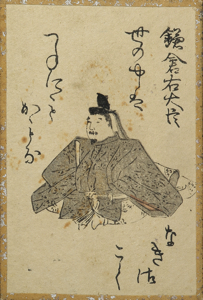 鎌倉右大臣
世の中は
つねにも
かもな
なきさ
こく